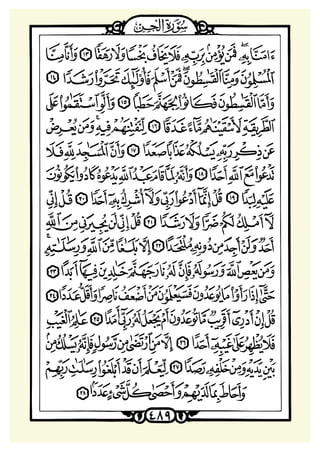 سُورَةُ الْجِنِّ
ءَامَنَّا بِهِۦ فَمَن يُؤْمِنۢ بِرَبِّهِۦ فَلَا يَخَافُ بَخْسًا وَلَا رَهَقًا ١٣ وَأَنَّا مِنَّا
الْمُسْلِمُونَ وَمِنَّا الْقَٰسِطُونَ فَمَنْ أَسْلَمَ فَأُو۟لَٰٓئِكَ تَحَرَّوْا۟ رَشَدًا ١٤
وَأَمَّا الْقَٰسِطُونَ فَكَانُوا۟ لِجَهَنَّمَ حَطَبًا ١٥ وَأَلَّوِ اسْتَقَٰمُوا۟ عَلَى
الطَّرِيقَةِ لَأَسْقَيْنَٰهُم مَّآءً غَدَقًا ١٦ لِّنَفْتِنَهُمْ فِيهِ وَمَن يُعْرِضْ
عَن ذِكْرِ رَبِّهِۦ يَسْلُكْهُ عَذَابًا صَعَدًا ١٧ وَأَنَّ الْمَسَٰجِدَ لِلَّهِ فَلَا
تَدْعُوا۟ مَعَ اللَّهِ أَحَدًا ١٨ وَأَنَّهُۥ لَمَّا قَامَ عَبْدُ اللَّهِ يَدْعُوهُ كَادُوا۟ يَكُونُونَ
عَلَيْهِ لِبَدًا ١٩ قُلْ إِنَّمَآ أَدْعُوا۟ رَبِّى وَلَآ أُشْرِكُ بِهِۦٓ أَحَدًا ٢٠ قُلْ إِنِّى
لَآ أَمْلِكُ لَكُمْ ضَرًّا وَلَا رَشَدًا ٢١ قُلْ إِنِّى لَن يُجِيرَنِى مِنَ اللَّهِ
أَحَدٌ وَلَنْ أَجِدَ مِن دُونِهِۦ مُلْتَحَدًا ٢٢ إِلَّا بَلَٰغًا مِّنَ اللَّهِ وَرِسَٰلَٰتِهِۦ
وَمَن يَعْصِ اللَّهَ وَرَسُولَهُۥ فَإِنَّ لَهُۥ نَارَ جَهَنَّمَ خَٰلِدِينَ فِيهَآ أَبَدًا ٢٣
حَتَّىٰٓ إِذَا رَأَوْا۟ مَا يُوعَدُونَ فَسَيَعْلَمُونَ مَنْ أَضْعَفُ نَاصِرًا وَأَقَلُّ عَدَدًا ٢٤
قُلْ إِنْ أَدْرِىٓ أَقَرِيبٌ مَّا تُوعَدُونَ أَمْ يَجْعَلُ لَهُۥ رَبِّىٓ أَمَدًا ٢٥ عَٰلِمُ الْغَيْبِ
فَلَا يُظْهِرُ عَلَىٰ غَيْبِهِۦٓ أَحَدًا ٢٦ إِلَّا مَنِ ارْتَضَىٰ مِن رَّسُولٍ فَإِنَّهُۥ يَسْلُكُ مِنۢ
بَيْنِ يَدَيْهِ وَمِنْ خَلْفِهِۦ رَصَدًا ٢٧ لِّيَعْلَمَ أَن قَدْ أَبْلَغُوا۟ رِسَٰلَٰتِ رَبِّهِمْ
وَأَحَاطَ بِمَا لَدَيْهِمْ وَأَحْصَىٰ كُلَّ شَىْءٍ عَدَدًۢا ٢٨
٤٨٩